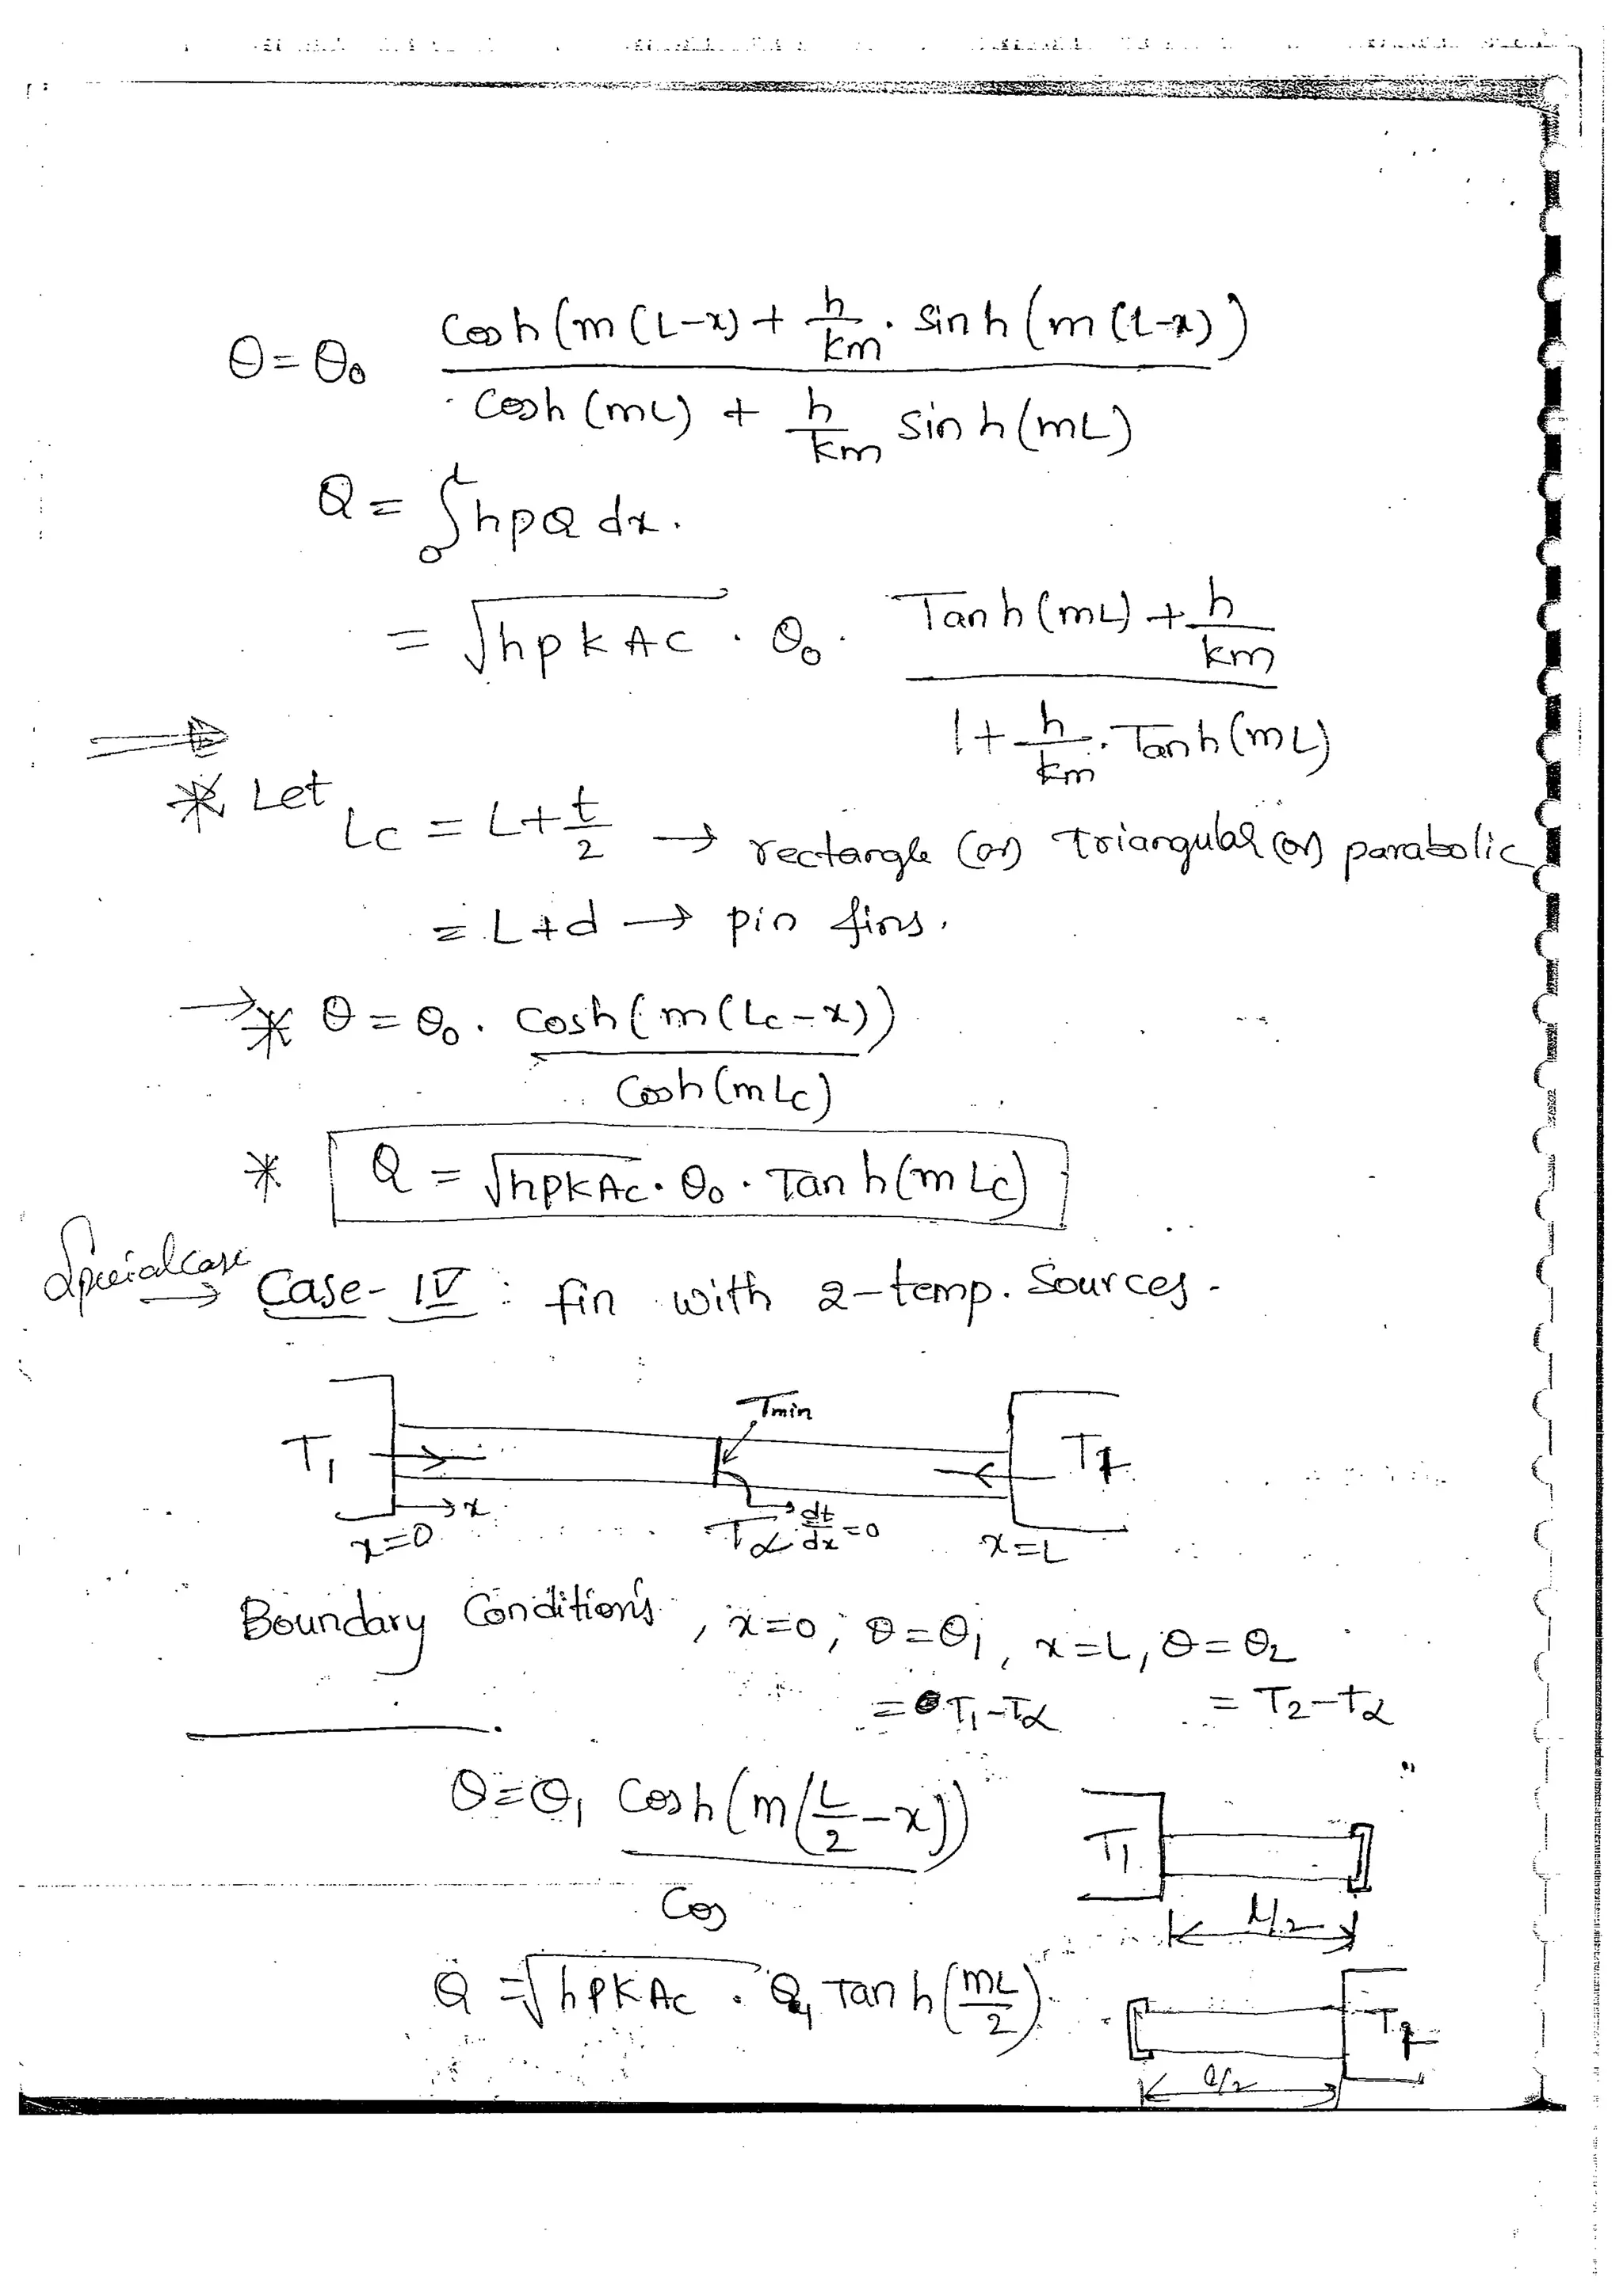 θ = θ₀ Cosh (m (L-x) + h/km . Sinh (m (L-x))
Cosh (mL) + h/km sinh (mL)
Q = ∫₀ᴸ hpθ dx.
= √hpkAC . θ₀ . Tanh (mL) + h/km
1 + h/km . Tanh (mL)
* Let
Lc = L + t/2 → rectangle (or) Triangular (or) parabolic
= L + d → pin fins.
→ * θ = θ₀ . Cosh (m (Lc - x))
Cosh (mLc)
* Q = √hpkAc . θ₀ . Tanh (m Lc)
Special case → Case - IV : fin with 2-temp. Sources -
Tmin
T₁
→ x
x=0
Tα
dt/dx = 0
x=L
Boundary Conditions, x=0; θ=θ₁, x=L, θ=θ₂
= T₁-Tα = T₂-tα
θ = θ₁ Cosh (m (L/2 - x))
Cos
T₁
L/2
Q = √hPKAc . θ₁ Tanh (mL/2)
l/2